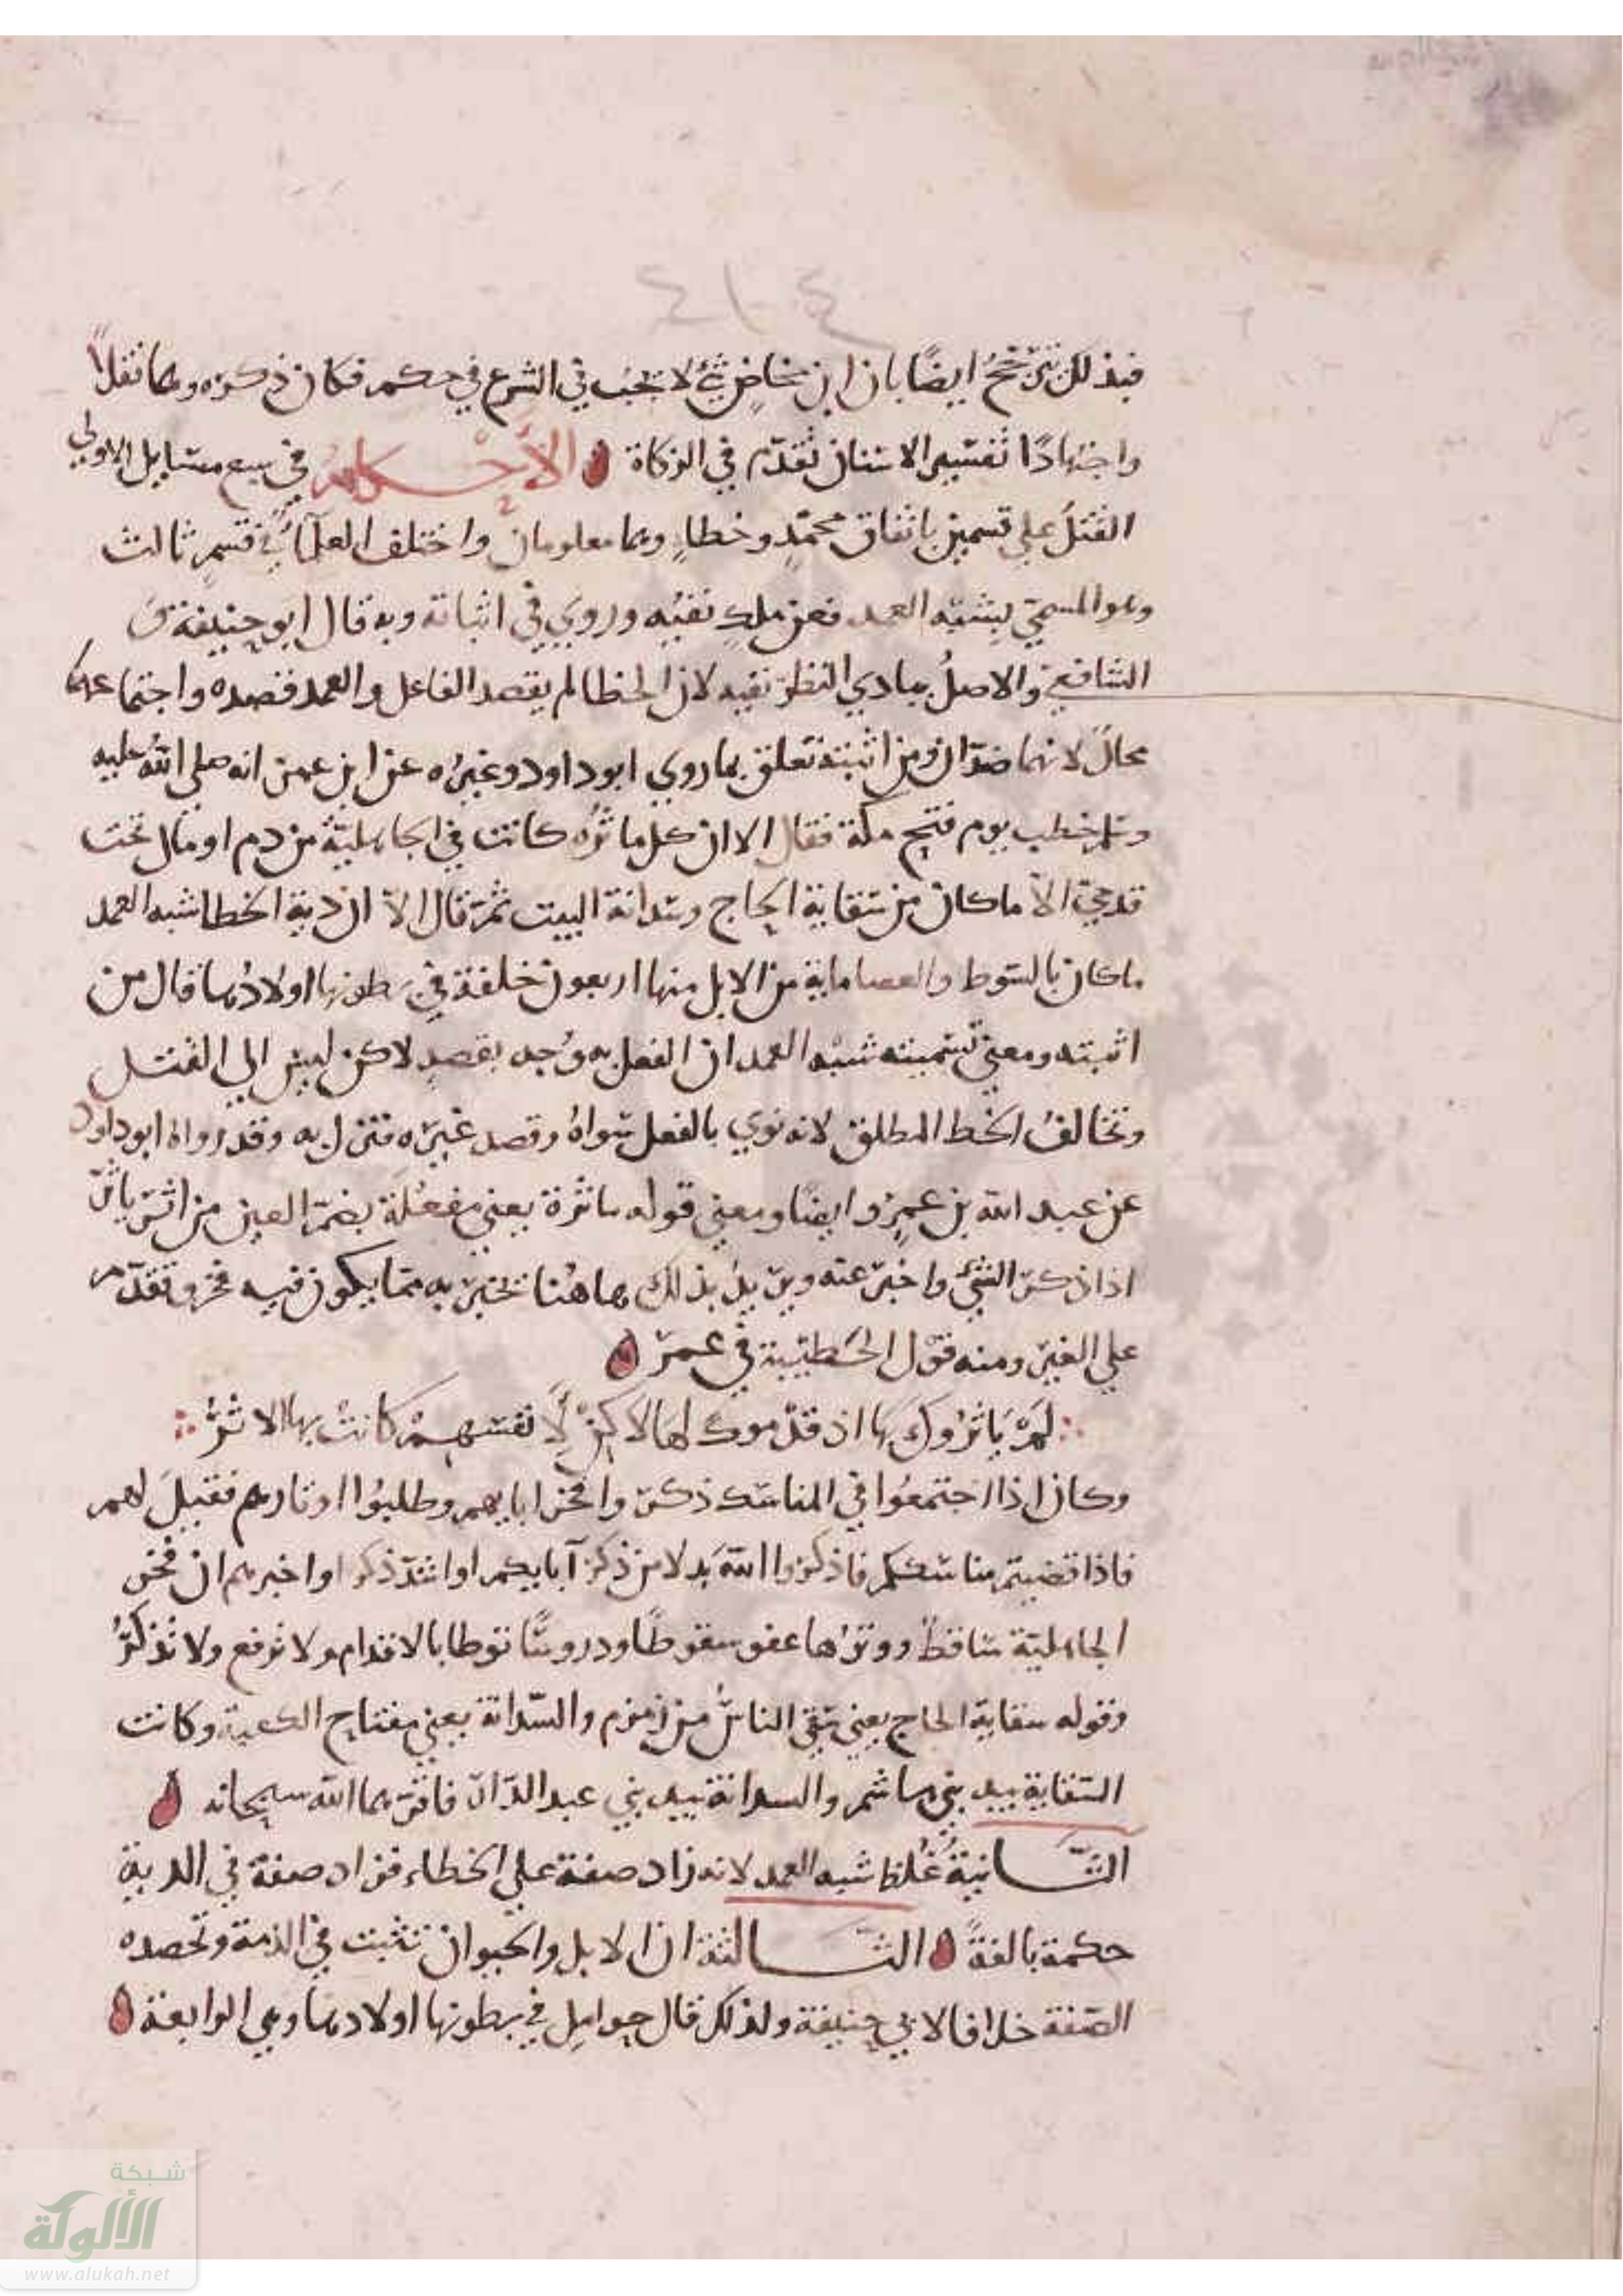 ٤١٠٤
فبذلك نترجح ايضًا بان ابن مخاض شئ لا تجب في الشرع في حكم فكان ذكره وهما نقلاً
واجتهادًا تفسير الاسنان تقدّم في الزكاة الأحكام في سبع مسايل الاولي
القتلُ علي قسمين باتفاق عمدٍ وخطاءٍ وهما معلومان واختلف العلمآءُ في قسمٍ ثالث
وهو المسمي بِشبه العمد فعن ملك نفيُه وروي في اثباته وبه قال ابو حنيفة وَ
الشافعي والاصلُ بمبادي النظر نفيه لان الخطا لم يقصد الفاعل والعمد قصده واجتماعهما
محالٌ لانهما ضدّان ومن اثبته تعلق بما روي ابو داود وغيرُه عن ابن عمر انه صلي اللهُ عليه
وسلم خطب يوم فتح مكة فقال الا ان كل ماثرُه كانت في الجاهليّة من دم او مال تحت
قدمي الاّ ما كان من سقاية الحاج وسدانة البيت ثمّ قال الاّ ان دية الخطا شبه العمد
ما كان بالسوط والعصا ماية من الابل منها اربعون خلفة في بطونها اولادُها قال من
اثبته ومعني تسميته شبه العمد ان الفعل به وُجد بقصدٍ لاكن ليس الي القتل
وتخالفُ الخط المطلق لانه نوي بالفعل سواهُ وقصد غيره فنزل به وقد رواهُ ابو داود
عن عبد الله بن عمرٍو ايضًا ومعني قوله ماثرة يعني مفعُلَة بضمّ العين من اثر ياثر
اذا ذكر الشئ واخبر عنه ويريدُ بذلك هاهُنا تخبر به ممّا يكون فيه فخر وتقدّم
علي الغير ومنه قوْل الحُطيّة في عمر
لمْ يَاثرُوكَ بها اذ قدّموك لها لاكنْ لأَنفسهمْ كانتْ بها الاثرُ
وكان اذا اجتمعُوا في المناسك ذكر وافخر ابايهم وطلبُوا اوتارهم فقيلَ لهم
فاذا قضيتم مناسككم فاذكروا اللهَ بدلا من ذكر آبايكم او اشدّ ذكرا واخبرهم ان فخر
الجاهليّة ساقط ووترُها عفو سقوطًا ودروسًا توطا بالاقدام ولا ترفع ولا تُذكّرُ
وقوله سقاية الحاج يعني سَقي الناسُ من زمزم والسّدانة يعني مفتاح الكعبة وكانت
السّقاية بيد بني هاشم والسدانة بيد بني عبد الدّار فاقرّهما الله سبحانه
الثّانيةُ غُلظ شبه العمد لانه زاد صفة علي الخطاء فزاد صفة في الدية
حكمة بالغةً الثّالثة ان الابل والحيوان تثبت في الذمة وتحصده
الصفة خلافا لابي حنيفة ولذلك قال حوامل في بطونها اولادها وهي الرابعة
شبكة
الألوكة
www.alukah.net